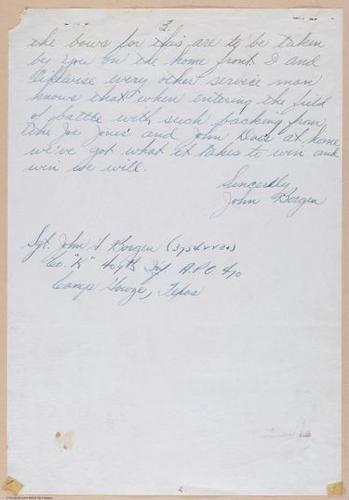 3
the bows for this are to be taken
by you on the home front I and
likewise every other service man
knows that when entering the field
of battle with such backing from
the Joe Jones' and John Does at home
we've got what it takes to win and
win we will.
Sincerely
John Borgen
Sgt. John S Borgen
Co. "K" 409th Inf A.P.O. 470
Camp Howze, Texas